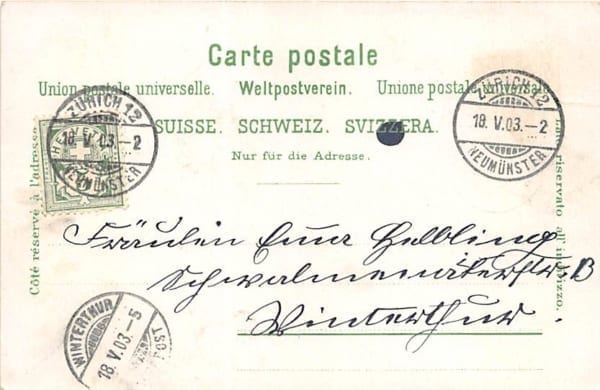 Carte postale
Union postale universelle. Weltpostverein. Unione postale universale
SUISSE. SCHWEIZ. SVIZZERA.
Nur für die Adresse.
Côté réservé à l'adresse.
riservato all' indirizzo.
ZÜRICH 12
18. V. 03. – 2
NEUMÜNSTER
ZÜRICH 12
18. V. 03. – 2
NEUMÜNSTER
Fräulein Emma Helbling
B
Winterthur.
WINTERTHUR
18. V. 03. – 5
POST